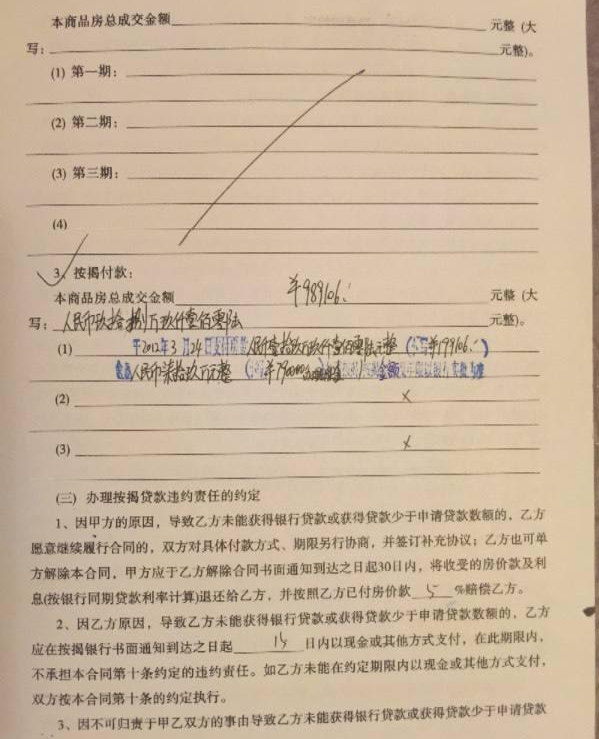 本商品房总成交金额 元整 (大
写: 元整)。
(1) 第一期:
(2) 第二期:
(3) 第三期:
(4)
3、按揭付款:
本商品房总成交金额 ¥989106. 元整 (大
写: 人民币玖拾捌万玖仟壹佰零陆 元整)。
(1) 于2012年3月24日支付 人民币壹拾玖万玖仟壹佰零陆元整 (小写¥199106.)
人民币柒拾玖万元整 (小写¥790000 金额 年限以银行
(2) ×
(3) ×
(三) 办理按揭贷款违约责任的约定
1、因甲方的原因，导致乙方未能获得银行贷款或获得贷款少于申请贷款数额的，乙方
愿意继续履行合同的，双方对具体付款方式、期限另行协商，并签订补充协议；乙方也可单
方解除本合同，甲方应于乙方解除合同书面通知到达之日起30日内，将收受的房价款及利
息(按银行同期贷款利率计算)退还给乙方，并按照乙方已付房价款 5 %赔偿乙方。
2、因乙方原因，导致乙方未能获得银行贷款或获得贷款少于申请贷款数额的，乙方
应在按揭银行书面通知到达之日起 15 日内以现金或其他方式支付，在此期限内，
不承担本合同第十条约定的违约责任。如乙方未能在约定期限内以现金或其他方式支付，
双方按本合同第十条的约定执行。
3、因不可归责于甲乙双方的事由导致乙方未能获得银行贷款或获得贷款少于申请贷款